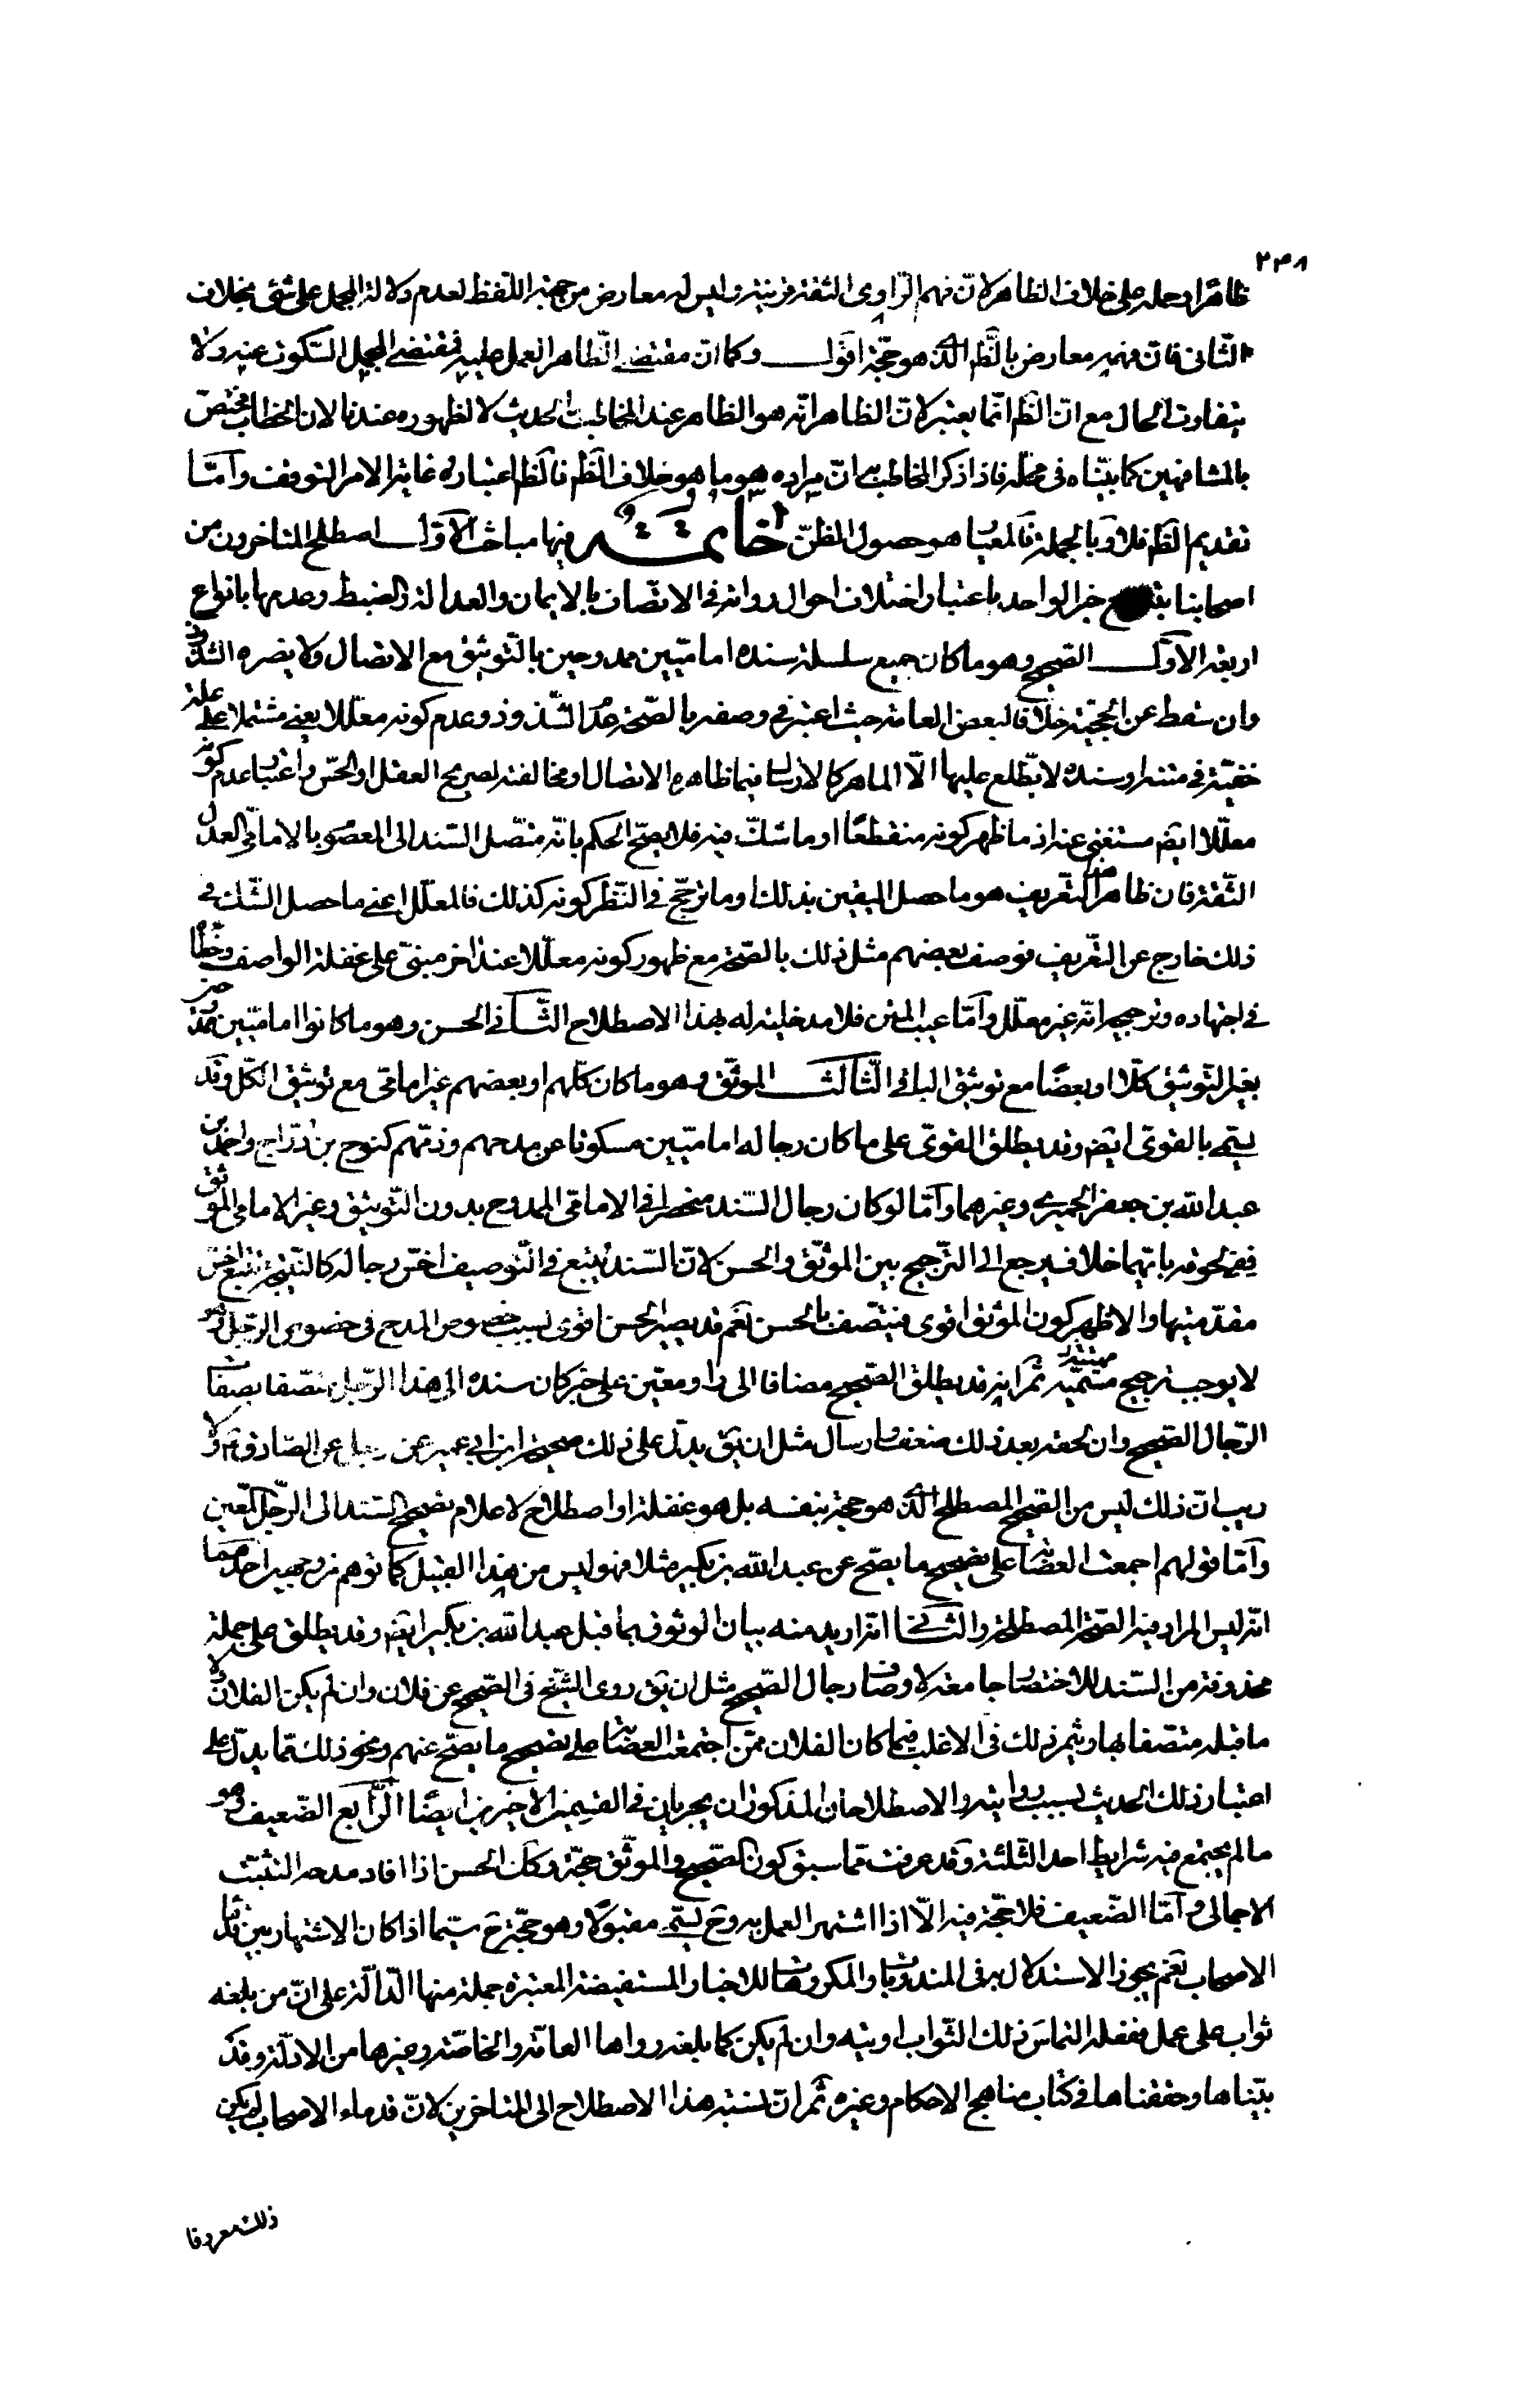 ٢٣٨
ظاهرا وحمله على خلاف الظاهر لان فهم الراوى الثقة قرينة وليس له معارض من جهة اللفظ لعدم دلالة المجمل على شئ بخلاف
الثانى فان فهمه معارض بالظم الذى هو حجة اقول وكما ان مقتضى الظاهر العمل عليه فمقتضى المجمل السكوت عنه ولا
يتفاوت الحال مع ان الظم انما يعتبر لان الظاهر انه هو الظاهر عند المخاطب الحديث لا لظهوره عندنا لان الخطاب مختص
بالمشافهين كما بيناه فى محله فاذا ذكر المخاطب ان مراده هو ما هو خلاف الظم فالظم اعتباره غاية الامر التوقف واما
تقديم الظم فلا وبالجملة فالمعيار هو حصول الظن خاتمة فيها مباحث الاول اصطلح المتاخرون من
اصحابنا خبر الواحد باعتبار اختلاف احوال رواته فى الاتصاف بالايمان والعدالة والضبط وعدمها بانواع
اربعة الاول الصحيح وهو ما كان جميع سلسلة سنده اماميين ممدوحين بالتوثيق مع الاتصال ولا يضره الشذوذ
وان سقط عن الحجية خلافا لبعض العامة حيث اعتبر فى وصفه بالصحة عدم الشذوذ وعدم كونه معللا يعنى مشتملا على علة
خفية فى متنه او سنده لا يطلع عليها الا الماهر كالارسال فيما ظاهره الاتصال او مخالفته لصريح العقل او الحس واعتبار عدم كونه
معللا ايضم مستغنى عنه اذ ما ظهر كونه منقطعا او ما شك فيه فلا يصح الحكم بانه متصل السند الى المعصوم بالامامى العدل
الثقة فان ظاهر هذا التعريف هو ما حصل اليقين بذلك وما ترجح فى النظر كونه كذلك فالمعلل اعنى ما حصل الشك فى
ذلك خارج عن التعريف فوصف بعضهم مثل ذلك بالصحة مع ظهور كونه معللا عند اخر مبنى على غفلة الواصف وخطائه
فى اجتهاده وترجيحه انه غير معلل واما عيب المتن فلا مدخلية له بهذا الاصطلاح الثانى الحسن وهو ما كانوا اماميين ممدوحين
بغير التوثيق كلا او بعضا مع توثيق الباقى الثالث الموثق وهو ما كان كلهم او بعضهم غير امامى مع توثيق الكل وقد
يسمى بالقوى ايضم وقد يطلق القوى على ما كان رجاله اماميين مسكوتا عن مدحهم وذمهم كنوح بن دراج واحمد بن
عبد الله بن جعفر الحميرى وغيرهما واما لو كان رجال السند منحصرا فى الامامى الممدوح بدون التوثيق وغير الامامى الموثق
ففى لحوقه بايهما خلاف يرجع الى الترجيح بين الموثق والحسن لان السند يتبع فى التوصيف اخس رجاله كالنتيجة تتبع اخس
مقدمتيها والاظهر كون الموثق اقوى فيتصف بالحسن نعم قد يصير الحسن اقوى بسبب خصوص المدح فى خصوص الرجل وهو
لا يوجب ترجيح مهيته ثم انه قد يطلق الصحيح مضافا الى راو معين على خبر كان سنده الى هذا الرجل متصفا بصفات
الرجال الصحيح وان لحقه بعد ذلك ضعف او ارسال مثل ان يق يدل على ذلك صحيحة ابن ابى عمير عن رجل عن الصادق ع ولا
ريب ان ذلك ليس من الصحيح المصطلح الذى هو حجة بنفسه بل هو غفلة او اصطلاح لاعلام تصحيح السند الى الرجل المعين
واما قولهم اجمعت العصابة على تصحيح ما يصح عن عبد الله بن بكير مثلا فهو ليس من هذا القبيل كما توهم من وجهين احدهما
انه ليس المراد فيه الصحة المصطلحة والثانى انه اريد منه بيان الوثوق بما قبل عبد الله بن بكير ايضم وقد يطلق على جملة
محذوفة من السند للاختصار جامعة لاوصاف رجال الصحيح مثل ان يق روى الشيخ فى الصحيح عن فلان وان لم يكن الفلان ولا
ما قبله متصفا بها ويثمر ذلك فى الاغلب فيما كان الفلان ممن اجتمعت العصابة على تصحيح ما يصح عنهم ونحو ذلك مما يدل على
اعتبار ذلك الحديث بسبب روايته والاصطلاحان المذكوران يجريان فى القسمين الاخيرين ايضا الرابع الضعيف وهو
ما لم يجتمع فيه شرايط احد الثلثة وقد عرفت مما سبق كون الصحيح والموثق حجة وكك الحسن اذا افاد مدحه التثبت
الاجمالى واما الضعيف فلا حجة فيه الا اذا اشتهر العمل به وح يسمى مقبولا وهو حجة ح سيما اذا كان الاشتهار بين قدماء
الاصحاب نعم يجوز الاستدلال به فى المندوبات والمكروهات للاخبار المستفيضة المعتبرة جملة منها الدالة على ان من بلغه
ثواب على عمل ففعله التماس ذلك الثواب اوتيه وان لم يكن كما بلغه رواها العامة والخاصة وغيرها من الادلة وقد
بيناها وحققناها فى كتاب مناهج الاحكام وغيره ثم ان نسبة هذا الاصطلاح الى المتاخرين لان قدماء الاصحاب لم يكن
ذلك معروفا